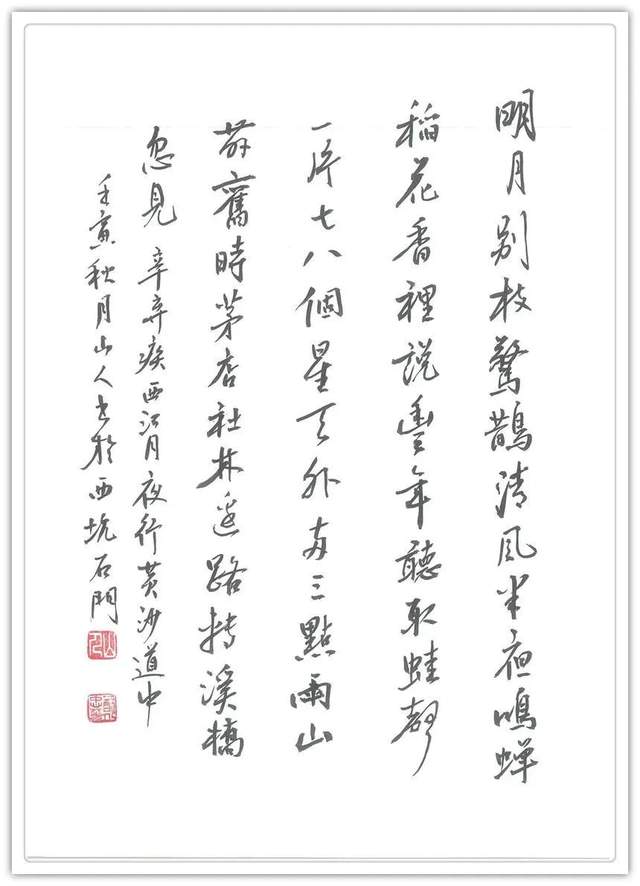 明月别枝驚鵲清風半夜鳴蟬
稻花香裡說豐年聽取蛙聲
一片七八個星天外兩三點雨山
前舊時茅店社林邊路轉溪橋
忽見 辛弃疾西江月夜行黄沙道中
壬寅秋月山人書於西坑石門